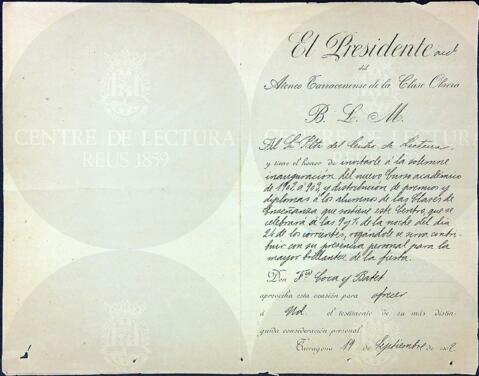 CENTRE DE LECTURA
REUS 1859
El Presidente acc.
del
Ateneo Tarraconense de la Clase Obrera
B. L. M.
Al Sr. Pte. del Centro de Lectura
y tiene el honor de invitarle á la solemne
inauguración del nuevo Curso académico
de 1902 á 903, y distribución de premios y
diplomas á los alumnos de las Clases de
Enseñanza que sostiene este Centro, que se
celebrará á las 9 y ½ de la noche del día
24 de los corrientes, rogándole se sirva contri-
buir con su presencia personal para la
mayor brillantez de la fiesta.
Don Coca y Batet
aprovecha esta ocasión para ofrecer
á Ud. el testimonio de su más distin-
guida consideración personal.
Tarragona 19 de Septiembre de